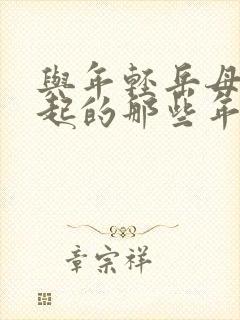 與年輕岳母
起的那些年
章宗祥